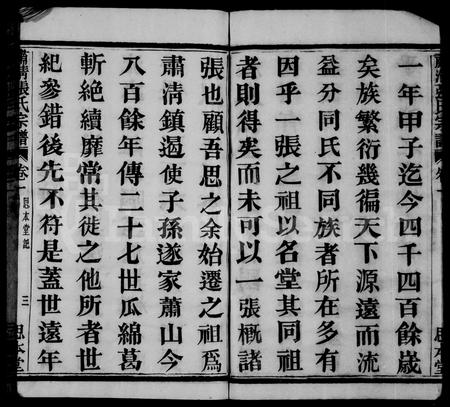 一年甲子迄今四千四百餘歲
矣族繁衍幾徧天下源遠而流
益分同氏不同族者所在多有
因乎一張之祖以名堂其同祖
者則得矣而未可以一張概諸
張也顧吾思之余始遷之祖爲
蕭清鎮遏使子孫遂家蕭山今
八百餘年傳二十七世瓜綿葛
斬絶續靡常其徙之他所者世
紀參錯後先不符是蓋世遠年
蕭清張氏宗譜
卷一
思本堂記
三
思本堂